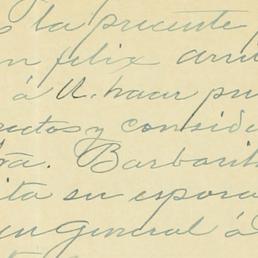 s la presente
n felix arri
á U. hacer pre
ectos y conside
ra. Barbarit
ita su espora
en General á